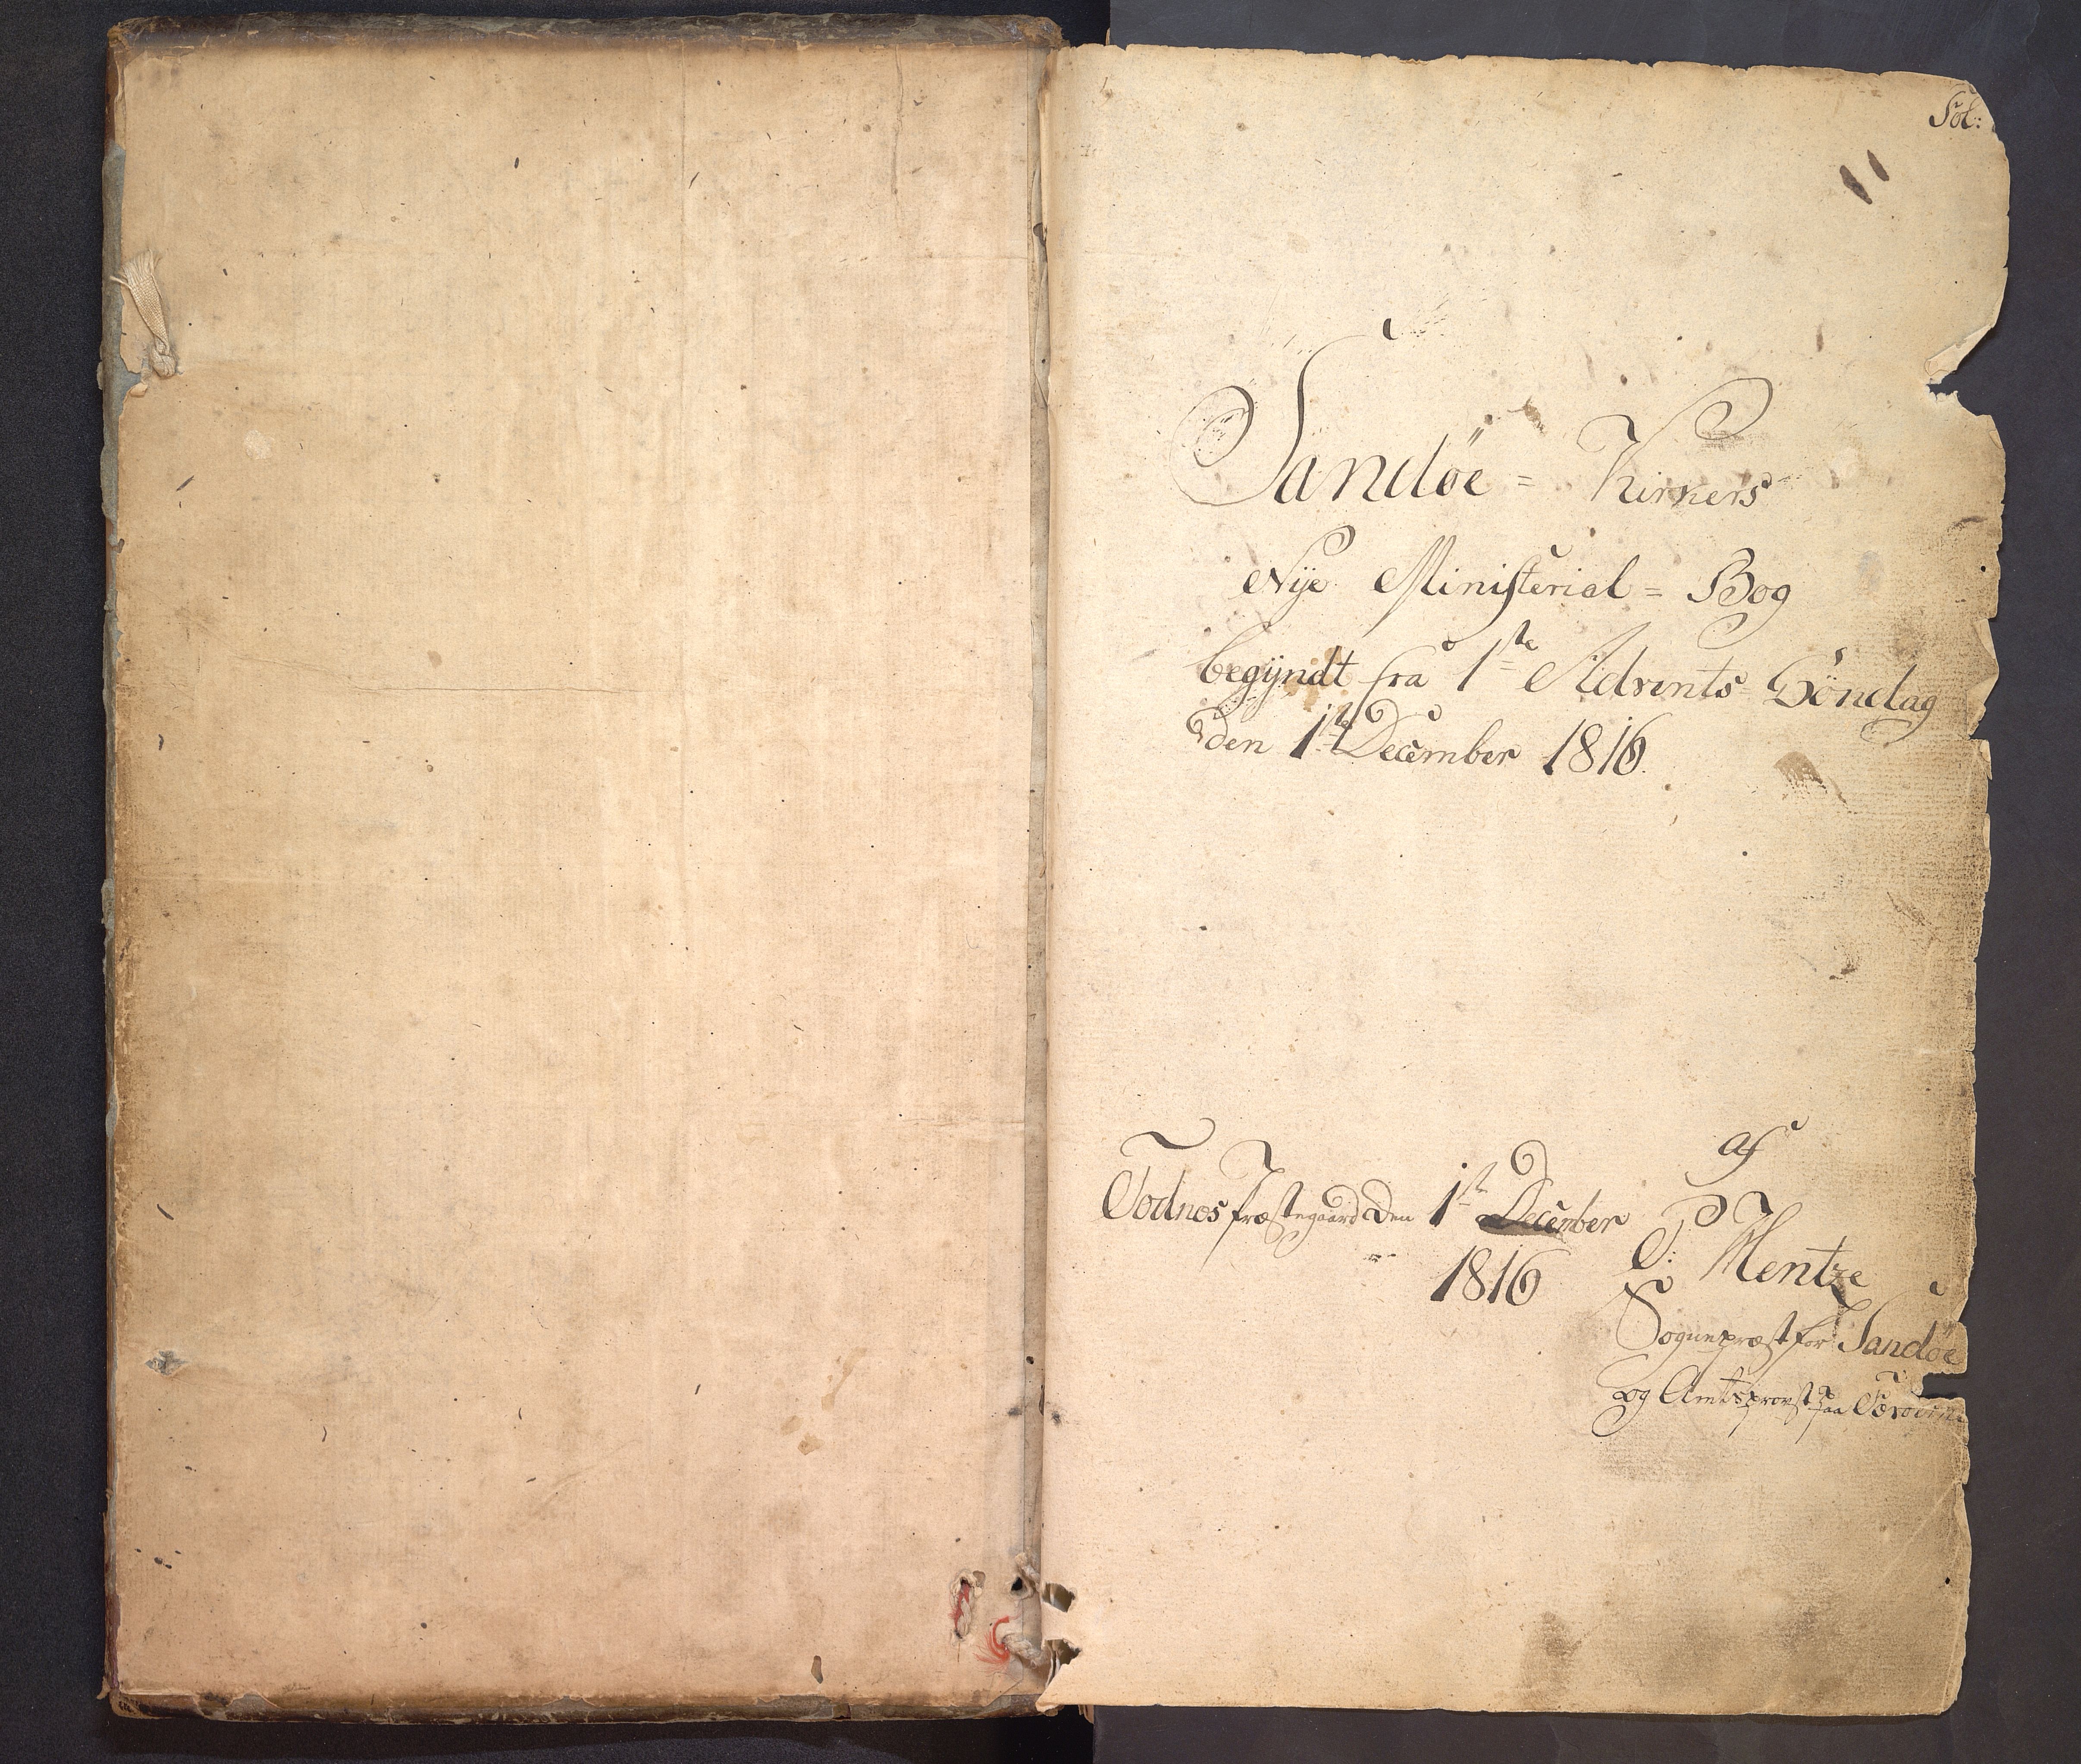 Fol:
Sandøe = Kirkers
Nÿe Ministerial = Bog
begÿndt fra 1ste Advents Söndag
den 1ste December 1816.
af
Todnes Præstegaard den 1ste December
1816
P: Hentze
Sognepræst for Sandøe
og Amtsprovst paa Færöerne